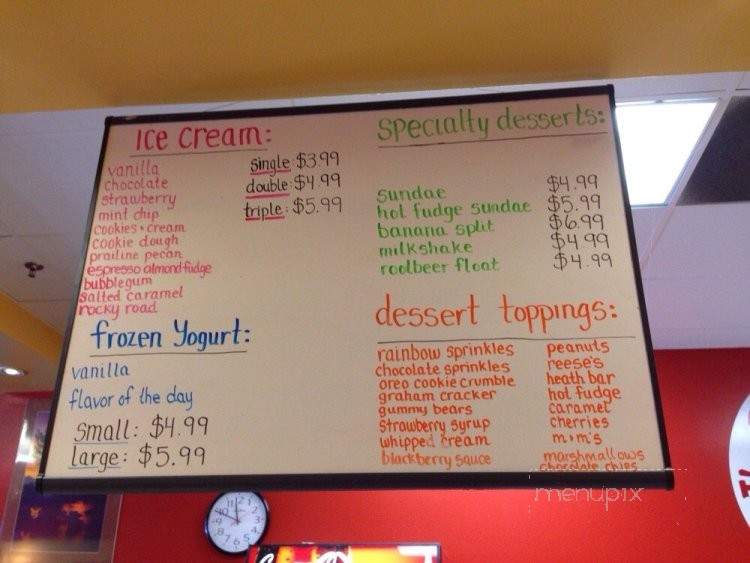 Ice cream:
vanilla
chocolate
strawberry
mint chip
cookies + cream
cookie dough
prailine pecan
espresso almond fudge
bubblegum
salted caramel
rocky road
single: $3.99
double: $4.99
triple: $5.99
frozen Yogurt:
vanilla
flavor of the day
Small: $4.99
large: $5.99
specialty desserts:
sundae $4.99
hot fudge sundae $5.99
banana split $6.99
milkshake $4.99
rootbeer float $4.99
dessert toppings:
rainbow sprinkles
chocolate sprinkles
oreo cookie crumble
graham cracker
gummy bears
strawberry syrup
whipped cream
blackberry sauce
peanuts
reese's
heath bar
hot fudge
caramel
cherries
m+m's
marshmallows
chocolate chips
menupix